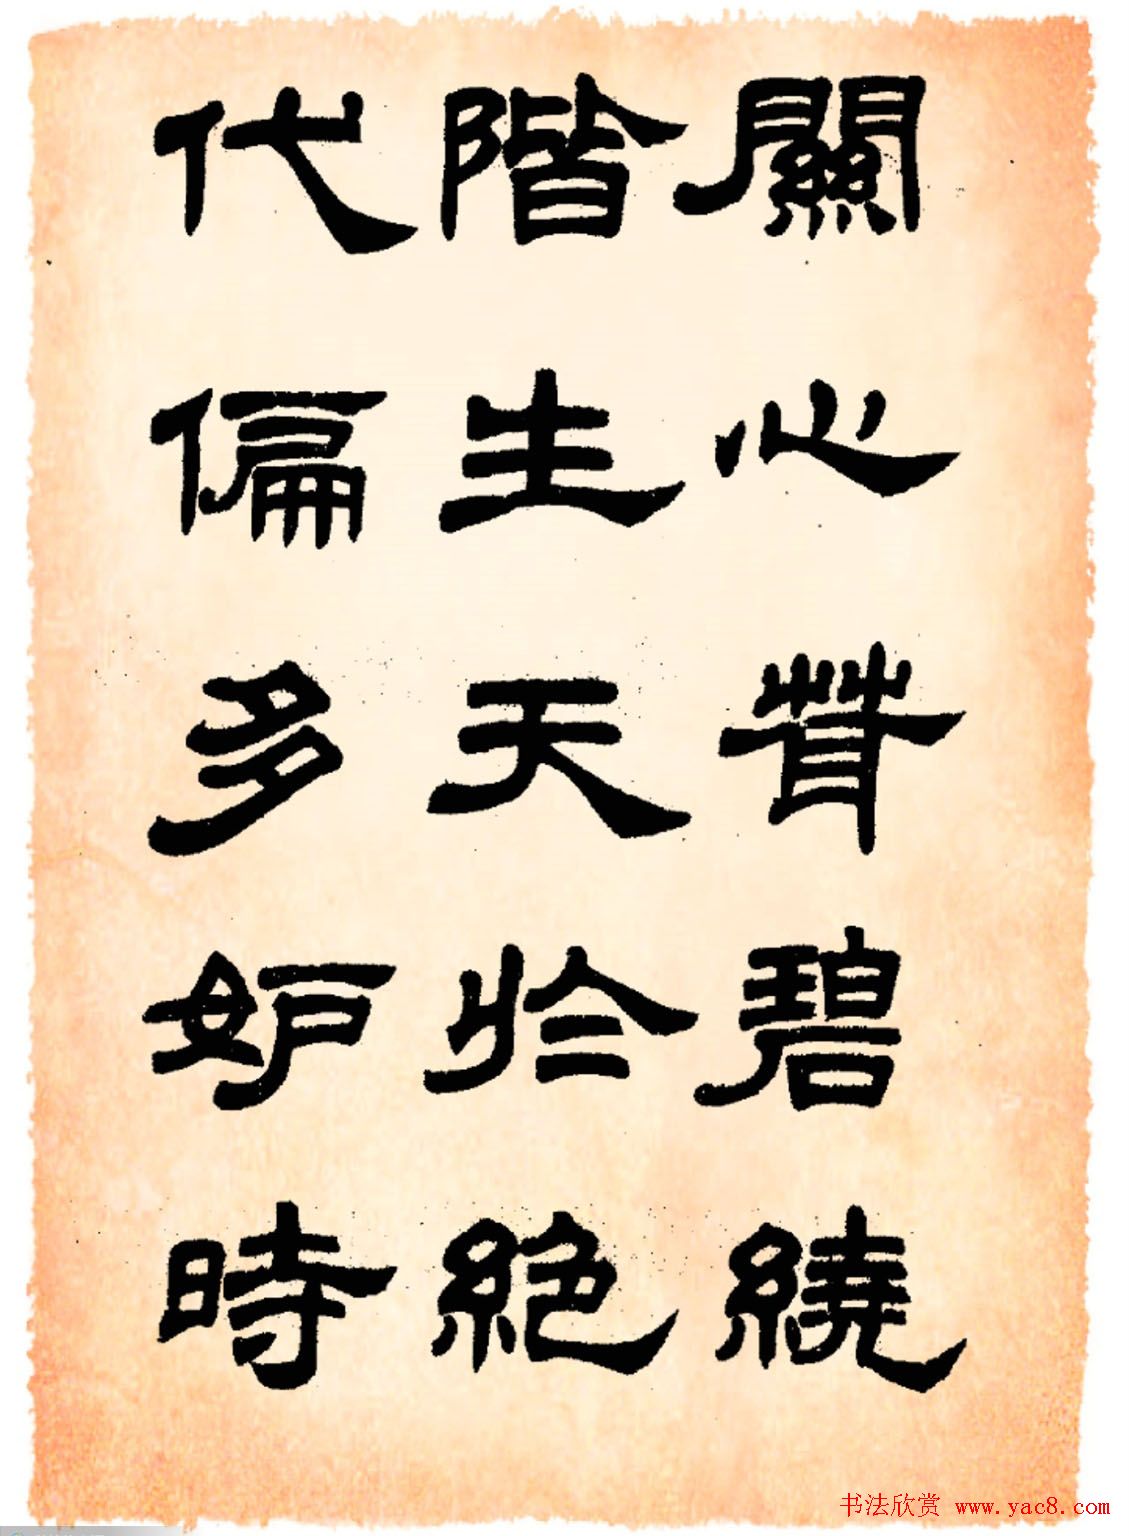 關心苔碧繞
階生天於絕
代偏多妒時
书法欣赏 www.yac8.com